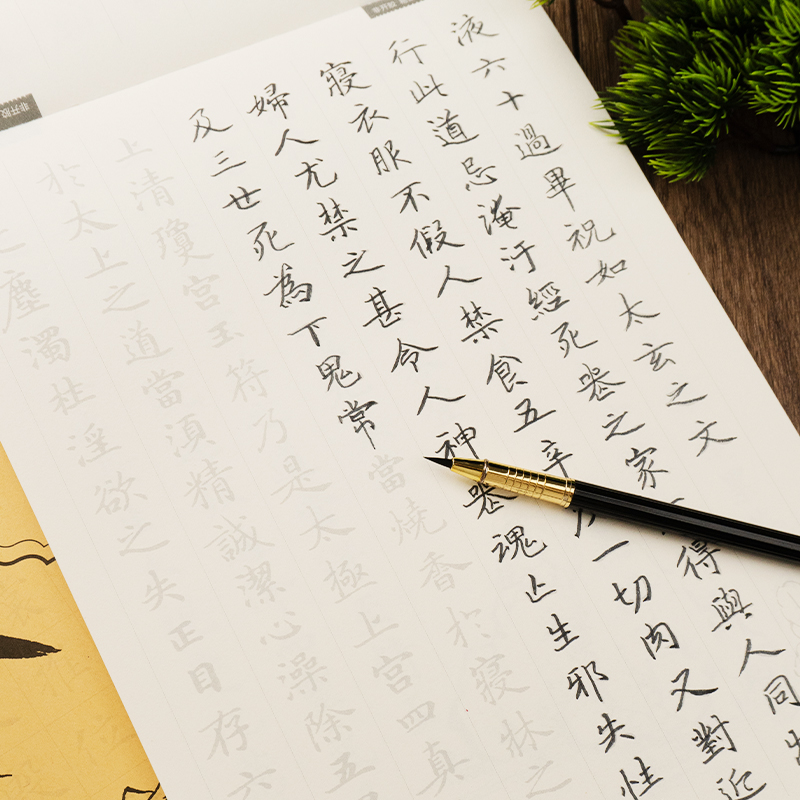 液六十過畢祝如太玄之文
行此道忌淹汙經死喪之家得與人同
寢衣服不假人禁食五辛及一切肉又對近
婦人尤禁之甚令人神喪魂亡生邪失性
及三世死為下鬼常當燒香於寢牀之
上清瓊宮玉符乃是太極上宮四真
於太上之道當須精誠潔心澡除五
塵濁柱淫欲之失正目存六